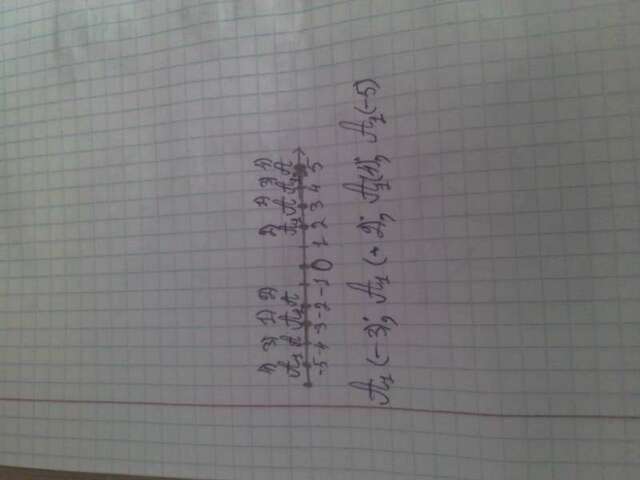 4) 3) 1) 2) 2) 1) 3) 4)
A₁ A A₁ A A₁ A A₁ A
-5 -4 -3 -2 -1 0 1 2 3 4 5
A₁ (-3); A₁ (+2); A₁(4); A₁(-5)